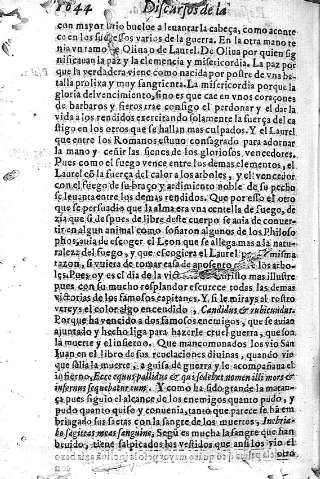 1644 Discursos de la
con mayor brio buelue a leuantar la cabeça, como aconte
ce en los sucessos varios de la guerra. En la otra mano te
nia vn ramo de Oliua o de Laurel. De Oliua por quien sig
nificauan la paz y la clemencia y misericordia. La paz por
que la verdadera viene como nacida por postre de vna ba-
talla prolixa y muy sangrienta. La misericordia porque la
gloria del vencimiento, sino es que cae en vnos coraçones
de barbaros y fieros trae consigo el perdonar y el dar la
vida a los rendidos exercitando solamente la fuerça del ca
stigo en los otros que se hallan mas culpados. Y el Laurel
que entre los Romanos estuuo consagrado para adornar
la mano y ceñir las sienes de los gloriosos vencedores.
Pues como el fuego vence entre los demas elementos, el
Laurel cõ la fuerça del calor a los arboles, y el vencedor
con el fuego de su braço y ardimiento noble de su pecho
se leuanta entre los demas rendidos. Que por esso el otro
que se persuadio que la alma era vna centella de fuego, de
zia que si despues de libre deste cuerpo se auia de conuer-
tir en algun animal como soñaron algunos de los Philoso
phos, auia de escoger el Leon que se allega mas a la natu-
raleza del fuego, y que escogiera el Laurel misma
razon, si vuiera de tomar casa de aposento los arbo-
les. Pues oy es el dia de la mas illustre
pues con su mucho resplandor escurece todas las demas
victorias de los famosos capitanes. Y si le mirays al rostro
vereys el color algo encendido, Candidus & rubicundus.
Porque ha vencido a dos famosos enemigos, que se auian
ajuntado y hecho liga para hazerle cruel guerra, que son
la muerte y el infierno. Que mancomunados los vio San
Juan en el libro de sus reuelaciones diuinas, quando vio
que salia la muerte a guisa de guerra y le acompañaua el
infierno, Ecce equus pallidus & qui sedebat nomen illi mors et
infernus sequebatur eum. Y como ha sido grande la matan-
ça pues siguio el alcance de los enemigos quanto pudo, y
pudo quanto quiso y conuenia, tanto que parece se hã em
briagado sus factas con la sangre de los muertos, Inebria-
bo sagittas meas sanguine, Segũ es mucha la sangre que han
beuido, tiene salpicados los vestidos que ansi los vio el
otro